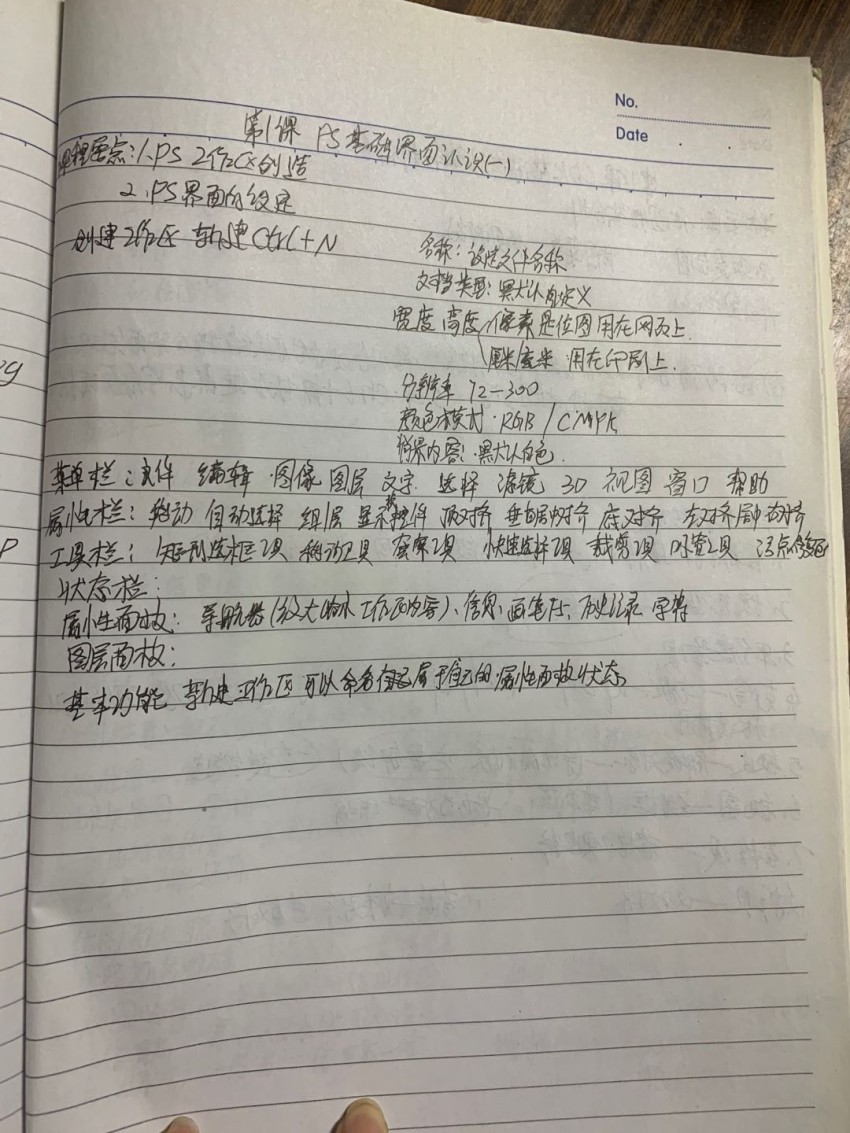 No.
Date
第1课 PS基础界面认识(一)
课程要点:1.PS工作区创造
2.PS界面的设定
创建工作区 新建Ctrl+N
名称:设定文件名称
文档类型:默认自定义
宽度 高度 像素是位图用在网页上.
厘米/毫米 用在印刷上.
分辨率 72-300
颜色模式:RGB/CMYK
背景内容:默认白色.
菜单栏:文件 编辑 图像 图层 文字 选择 滤镜 3D 视图 窗口 帮助
属性栏:移动 自动选择 组层 显示控件 顶对齐 垂直居中对齐 底对齐 左对齐 居中 右对齐
工具栏:矩形选框工具 移动工具 套索工具 快速选择工具 裁剪工具 吸管工具 污点修复
状态栏:
属性面板:导航器(放大缩小工作区内容)、信息、画笔、历史记录 字符
图层面板:
基本功能 新建工作区可以命名 属于自己的属性面板状态